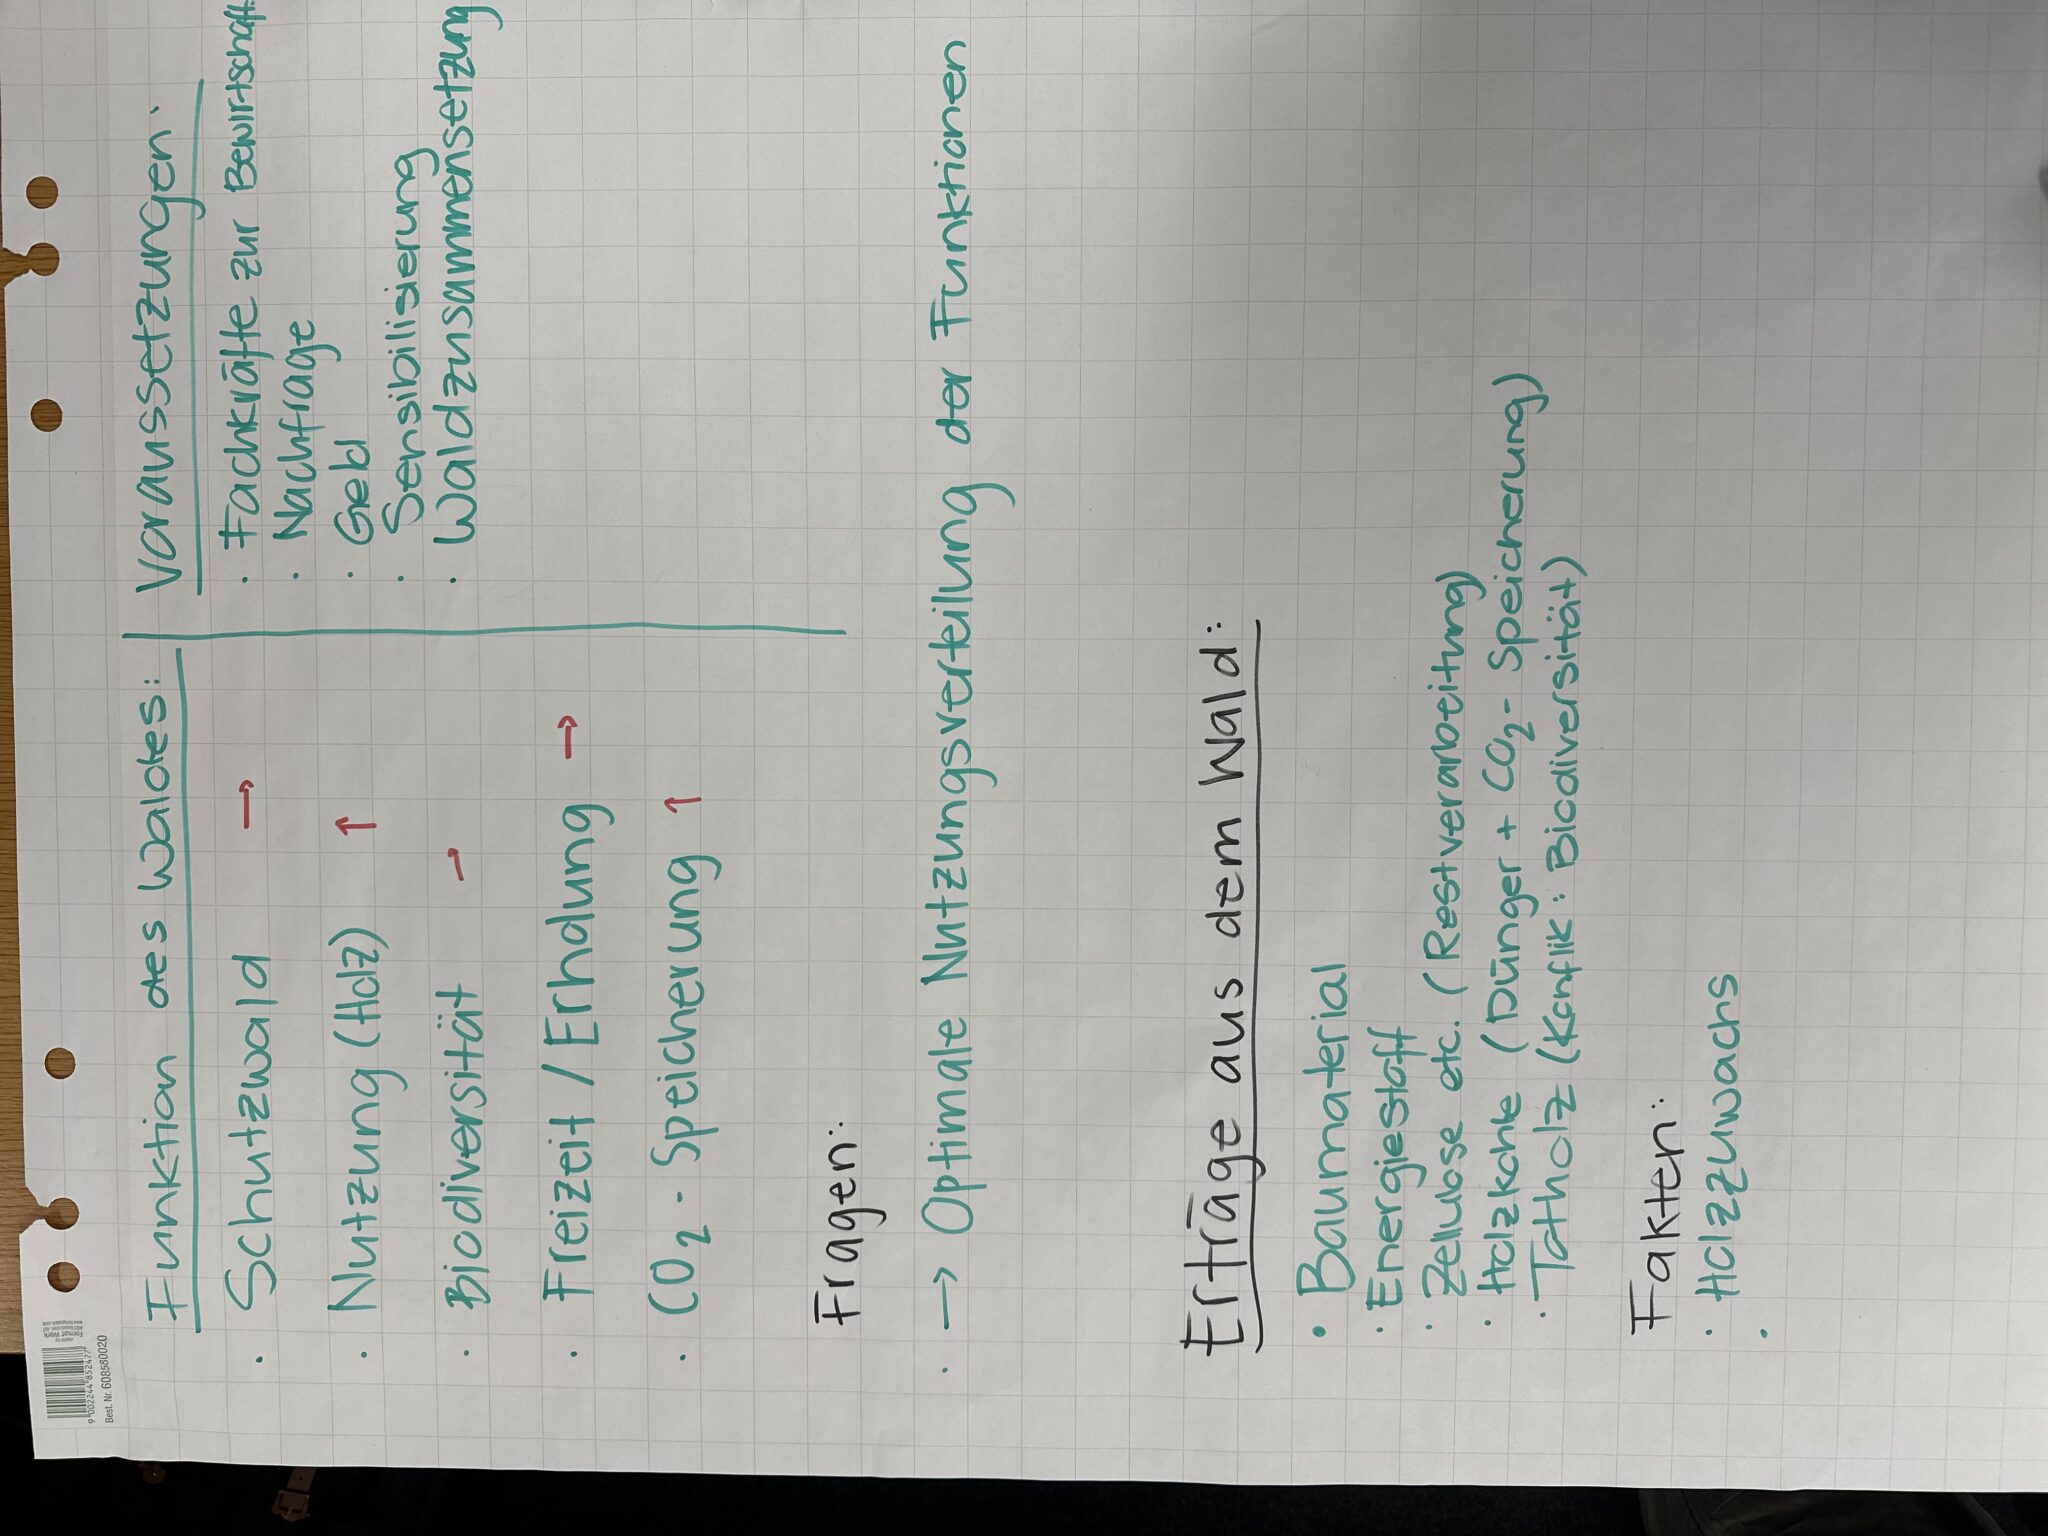 Funktion des Waldes:
• Schutzwald →
• Nutzung (Holz) ↑
• Biodiversität →
• Freizeit / Erholung →
• CO₂ - Speicherung ↑
Voraussetzungen:
• Fachkräfte zur Bewirtschaft
• Nachfrage
• Geld
• Sensibilisierung
• Waldzusammensetzung
Fragen:
• → Optimale Nutzungsverteilung der Funktionen
Erträge aus dem Wald:
• Baumaterial
• Energiestoff
• Zellulose etc. (Restverarbeitung)
• Holzkohle (Dünger + CO₂ - Speicherung)
• Totholz (Konflik: Biodiversität)
Fakten:
• Holzzuwachs
•
made by
Format Werk
9 002244 852477
Best. Nr. 608580020